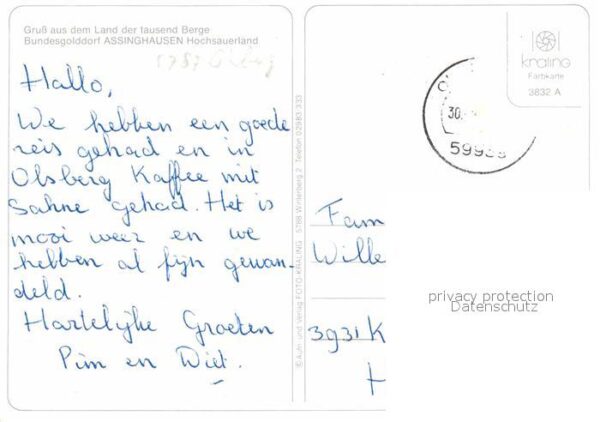 Gruß aus dem Land der tausend Berge
Bundesgolddorf ASSINGHAUSEN Hochsauerland
Hallo,
We hebben een goede
reis gehad en in
Olsberg Kaffee mit
Sahne gehad. Het is
mooi weer en we
hebben al fijn gewan-
deld.
Hartelijke Groeten
Pim en Diet.
© Aufn. und Verlag FOTO-KRALING 5788 Winterberg 2 Telefon 02983 333
kraling
Farbkarte
3832 A
30.
59939
Fam
Wille
3931 K
H
privacy protection
Datenschutz